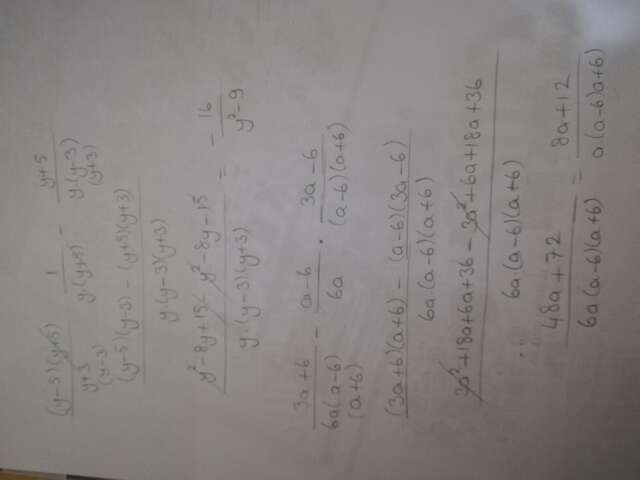 (y-5)(y+5)/(y+3) (y-3) · 1/y·(y+5) - y+5/y·(y-3) (y+3)
(y-5)(y-3) - (y+5)(y+3)/y(y-3)(y+3)
y²-8y+15 - y²-8y-15/y·(y-3)(y+3) = - 16/y²-9
3a+6/6a(a-6) (a+6) - a-6/6a · 3a-6/(a-6)(a+6)
(3a+6)(a+6) - (a-6)(3a-6)/6a(a-6)(a+6)
3a²+18a+6a+36-3a²+6a+18a+36/6a·(a-6)(a+6)
48a+72/6a(a-6)(a+6) = 8a+12/a·(a-6)a+6)